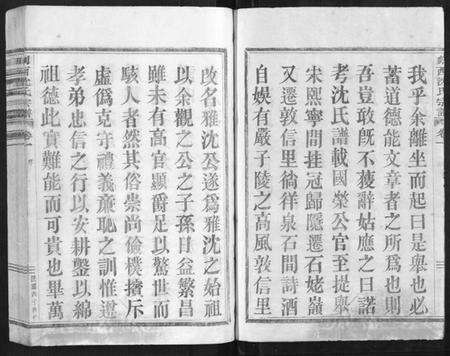 我乎余離坐而起曰是舉也必
蓄道德能文章者之所爲也則
吾豈敢旣不獲辭姑應之曰諾
考沈氏譜載國榮公官至提舉
宋熙寧間挂冠歸隱遷石姥嶺
又遷敦信里徜徉泉石間詩酒
自娛有嚴子陵之高風敦信里
改名雅沈公遂爲雅沈之始祖
以余觀之公之子孫日益繁昌
雖未有高官顯爵足以驚世而
駭人者然其俗崇尚儉樸擯斥
虛僞克守禮義廉恥之訓惟遵
孝弟忠信之行以安耕鑿以綿
祖德此實難能而可貴也畢萬